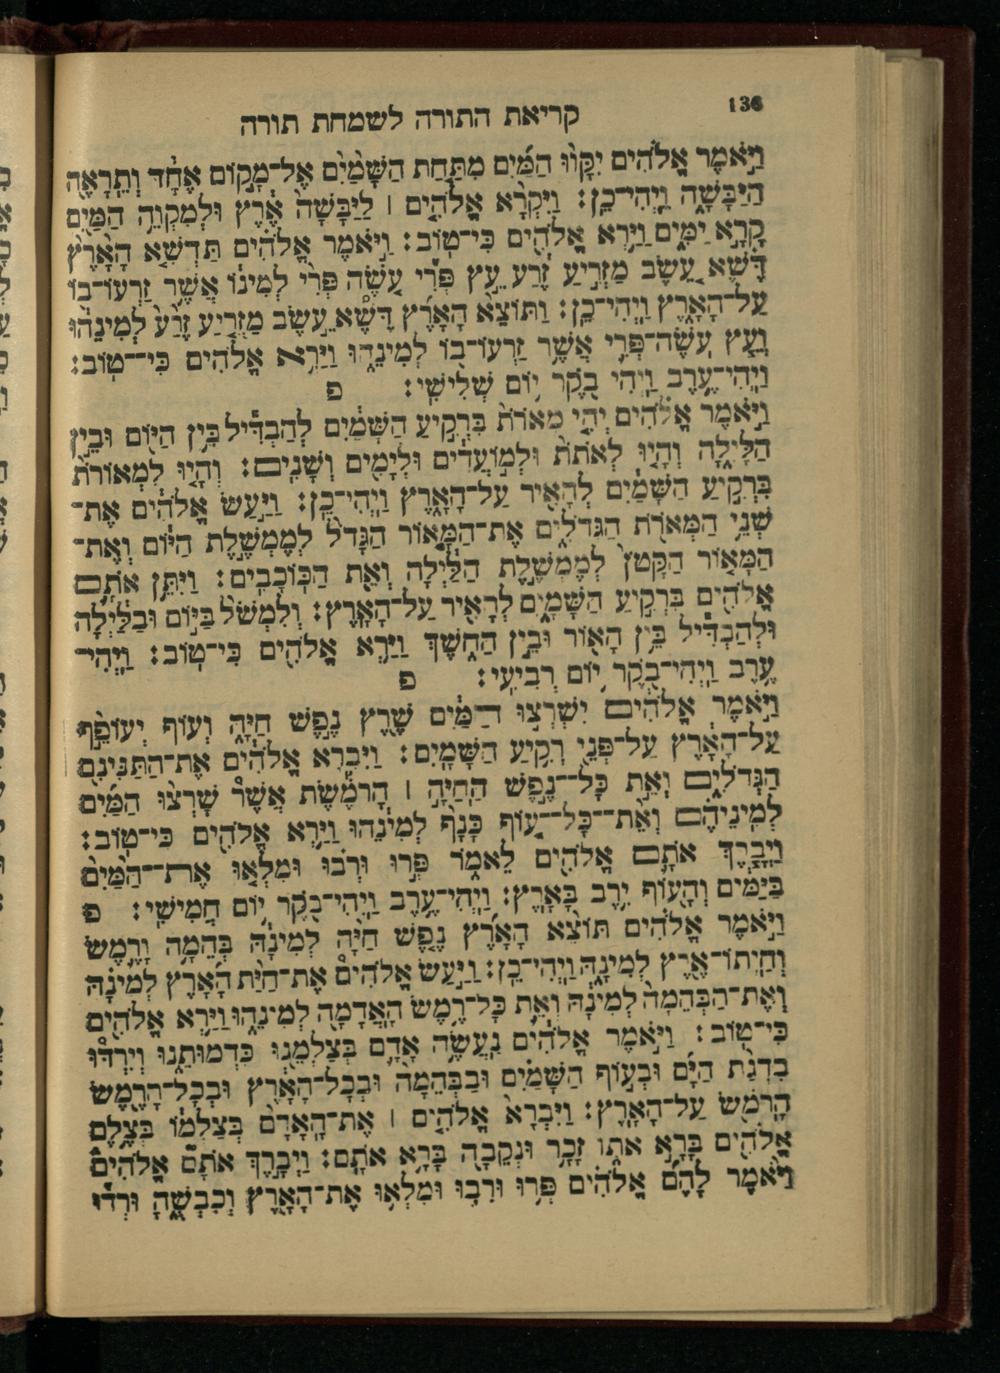 136
קריאת התורה לשמחת תורה
וַיֹּאמֶר אֱלֹהִים יִקָּווּ הַמַּיִם מִתַּחַת הַשָּׁמַיִם אֶל־מָקוֹם אֶחָד וְתֵרָאֶה
הַיַּבָּשָׁה וַיְהִי־כֵן: וַיִּקְרָא אֱלֹהִים ׀ לַיַּבָּשָׁה אֶרֶץ וּלְמִקְוֵה הַמַּיִם
קָרָא יַמִּים וַיַּרְא אֱלֹהִים כִּי־טוֹב: וַיֹּאמֶר אֱלֹהִים תַּדְשֵׁא הָאָרֶץ
דֶּשֶׁא עֵשֶׂב מַזְרִיעַ זֶרַע עֵץ פְּרִי עֹשֶׂה פְּרִי לְמִינוֹ אֲשֶׁר זַרְעוֹ־בוֹ
עַל־הָאָרֶץ וַיְהִי־כֵן: וַתּוֹצֵא הָאָרֶץ דֶּשֶׁא עֵשֶׂב מַזְרִיעַ זֶרַע לְמִינֵהוּ
וְעֵץ עֹשֶׂה־פְּרִי אֲשֶׁר זַרְעוֹ־בוֹ לְמִינֵהוּ וַיַּרְא אֱלֹהִים כִּי־טוֹב:
וַיְהִי־עֶרֶב וַיְהִי בֹקֶר יוֹם שְׁלִישִׁי: פ
וַיֹּאמֶר אֱלֹהִים יְהִי מְאֹרֹת בִּרְקִיעַ הַשָּׁמַיִם לְהַבְדִּיל בֵּין הַיּוֹם וּבֵין
הַלָּיְלָה וְהָיוּ לְאֹתֹת וּלְמוֹעֲדִים וּלְיָמִים וְשָׁנִים: וְהָיוּ לִמְאוֹרֹת
בִּרְקִיעַ הַשָּׁמַיִם לְהָאִיר עַל־הָאָרֶץ וַיְהִי־כֵן: וַיַּעַשׂ אֱלֹהִים אֶת־
שְׁנֵי הַמְּאֹרֹת הַגְּדֹלִים אֶת־הַמָּאוֹר הַגָּדֹל לְמֶמְשֶׁלֶת הַיּוֹם וְאֶת־
הַמָּאוֹר הַקָּטֹן לְמֶמְשֶׁלֶת הַלַּיְלָה וְאֵת הַכּוֹכָבִים: וַיִּתֵּן אֹתָם
אֱלֹהִים בִּרְקִיעַ הַשָּׁמָיִם לְהָאִיר עַל־הָאָרֶץ: וְלִמְשֹׁל בַּיּוֹם וּבַלַּיְלָה
וּלְהַבְדִּיל בֵּין הָאוֹר וּבֵין הַחֹשֶׁךְ וַיַּרְא אֱלֹהִים כִּי־טוֹב: וַיְהִי־
עֶרֶב וַיְהִי־בֹקֶר יוֹם רְבִיעִי: פ
וַיֹּאמֶר אֱלֹהִים יִשְׁרְצוּ הַמַּיִם שֶׁרֶץ נֶפֶשׁ חַיָּה וְעוֹף יְעוֹפֵף
עַל־הָאָרֶץ עַל־פְּנֵי רְקִיעַ הַשָּׁמָיִם: וַיִּבְרָא אֱלֹהִים אֶת־הַתַּנִּינִם
הַגְּדֹלִים וְאֵת כָּל־נֶפֶשׁ הַחַיָּה ׀ הָרֹמֶשֶׂת אֲשֶׁר שָׁרְצוּ הַמַּיִם
לְמִינֵיהֶם וְאֵת־כָּל־עוֹף כָּנָף לְמִינֵהוּ וַיַּרְא אֱלֹהִים כִּי־טוֹב:
וַיְבָרֶךְ אֹתָם אֱלֹהִים לֵאמֹר פְּרוּ וּרְבוּ וּמִלְאוּ אֶת־הַמַּיִם
בַּיַּמִּים וְהָעוֹף יִרֶב בָּאָרֶץ: וַיְהִי־עֶרֶב וַיְהִי־בֹקֶר יוֹם חֲמִישִׁי: פ
וַיֹּאמֶר אֱלֹהִים תּוֹצֵא הָאָרֶץ נֶפֶשׁ חַיָּה לְמִינָהּ בְּהֵמָה וָרֶמֶשׂ
וְחַיְתוֹ־אֶרֶץ לְמִינָהּ וַיְהִי־כֵן: וַיַּעַשׂ אֱלֹהִים אֶת־חַיַּת הָאָרֶץ לְמִינָהּ
וְאֶת־הַבְּהֵמָה לְמִינָהּ וְאֵת כָּל־רֶמֶשׂ הָאֲדָמָה לְמִינֵהוּ וַיַּרְא אֱלֹהִים
כִּי־טוֹב: וַיֹּאמֶר אֱלֹהִים נַעֲשֶׂה אָדָם בְּצַלְמֵנוּ כִּדְמוּתֵנוּ וְיִרְדּוּ
בִדְגַת הַיָּם וּבְעוֹף הַשָּׁמַיִם וּבַבְּהֵמָה וּבְכָל־הָאָרֶץ וּבְכָל־הָרֶמֶשׂ
הָרֹמֵשׂ עַל־הָאָרֶץ: וַיִּבְרָא אֱלֹהִים ׀ אֶת־הָאָדָם בְּצַלְמוֹ בְּצֶלֶם
אֱלֹהִים בָּרָא אֹתוֹ זָכָר וּנְקֵבָה בָּרָא אֹתָם: וַיְבָרֶךְ אֹתָם אֱלֹהִים
וַיֹּאמֶר לָהֶם אֱלֹהִים פְּרוּ וּרְבוּ וּמִלְאוּ אֶת־הָאָרֶץ וְכִבְשֻׁהָ וּרְדוּ